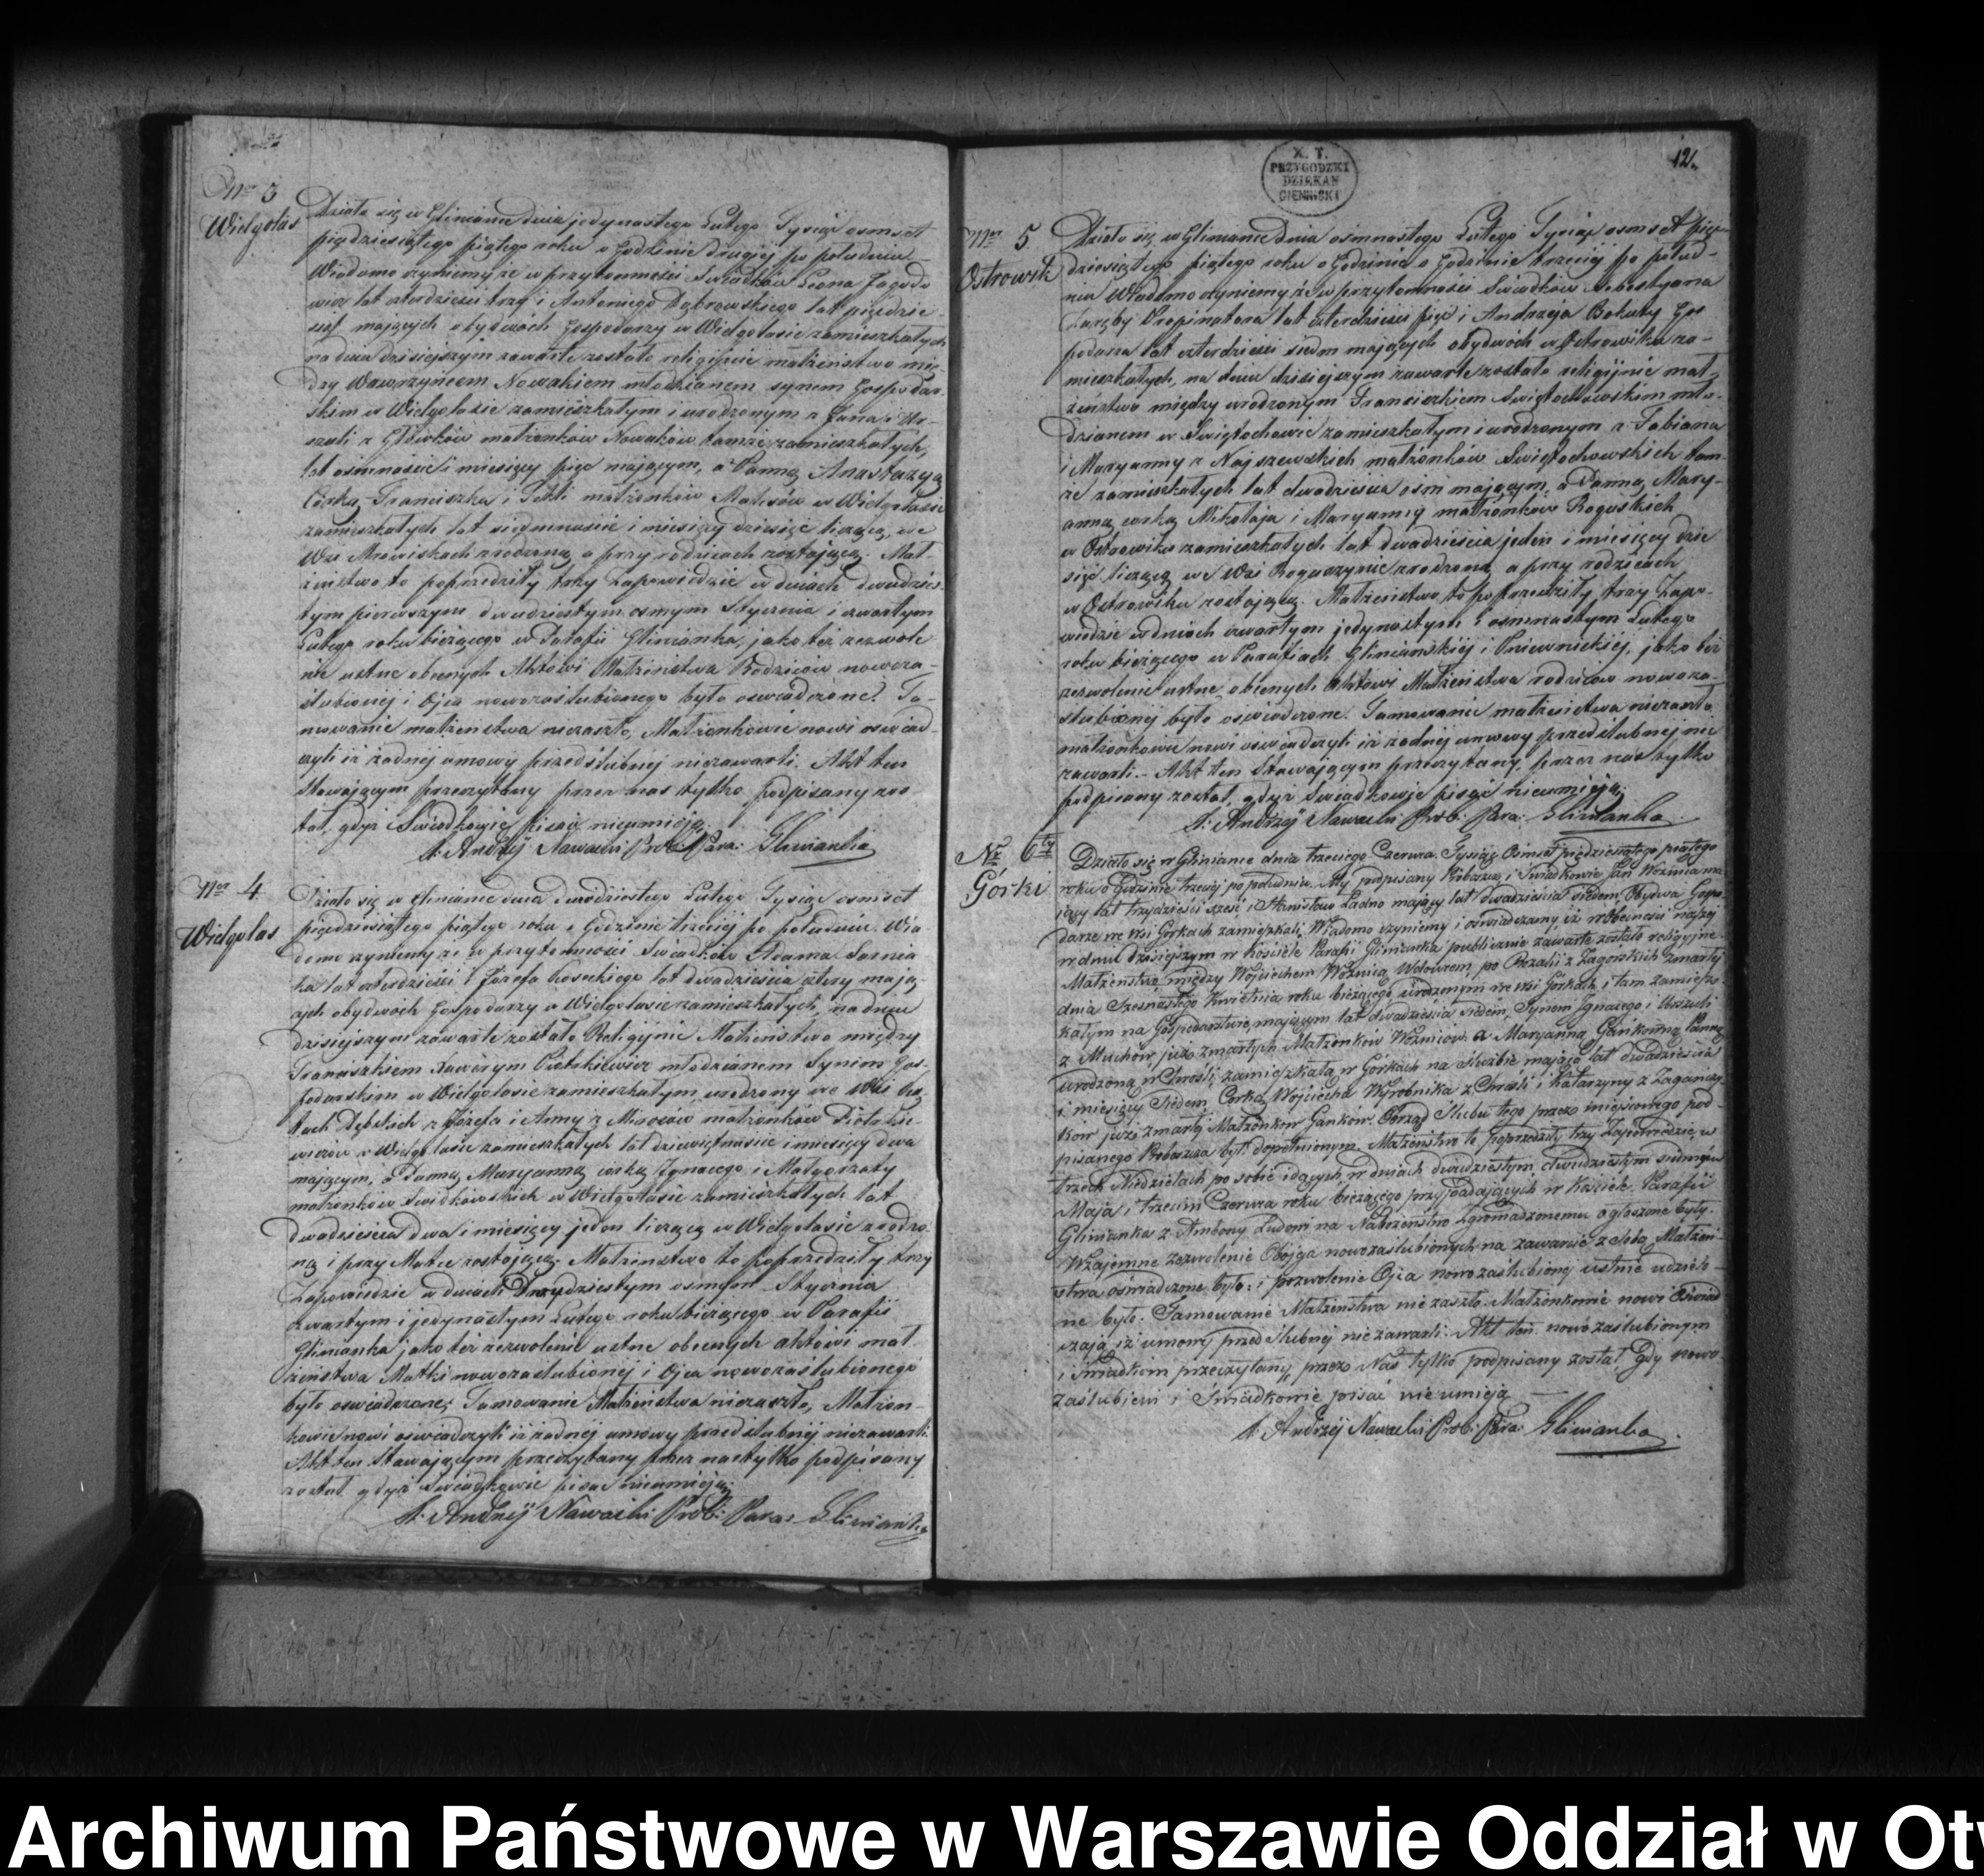 Nro 3
Wielgolas
Działo się w Gliniance dnia jedynastego Lutego Tysiąc osmset
pięcdziesiątego piątego roku o Godzinie drugiej po południu
Wiadomo czyniemy że w przytomności Swiadków Leona Jagodo
wicz lat czterdzieści trzy i Antoniego Dąbrowskiego lat pięcdzie
siąt mających obydwóch Gospodarzy w Wielgolasie zamieszkałych
na dniu dzisiejszym zawarte zostało religijnie małżeństwo mię-
dzy Wawrzyńcem Nowakiem młodzianem synem Gospodar
skim w Wielgolasie zamieszkałym i urodzonym z Jana i Ur-
szuli z Główków małżonków Nowaków tamże zamieszkałych,
lat osimnaście i miesięcy pięc mającym, a Panną Anastazyą
Córką Franciszka i Tekli małżonków w Wielgolasie
zamieszkałych lat siedmnaście i miesięcy dziesięć liczącą, we
Wsi Mrowiskach zrodzoną a przy rodzicach zostającą. Mał-
żeństwo to poprzedziły trzy zapowiedzie w dniach dwudzies-
tym pierwszym dwudziestym osmym Stycznia i czwartym
Lutego roku bieżącego w Parafii Glinianka, jako też zezwole
nie ustne obecnych Aktowi Małżeństwa Rodziców nowoza-
ślubionej i Ojca nowozaślubionego było oswiadczone. Ta-
mowanie małżenstwa niezaszło, Małżonkowie nowi oswiad-
czyli iż żadnej umowy przedślubnej niezawarli. Akt ten
Stawającym przeczytany przez nas tylko podpisany zos
tał, gdyż Swiadkowie pisać nieumieją.
X. Andrzej Nawacki Prob: Para: Glinianka
Nro 4
Wielgolas
Działo się w Gliniance dnia Lutego Tysiąc osmset
pięcdziesiątego piątego roku o Godzinie trzeciej po południu. Wia-
domo czyniemy że w przytomności Swiadków Adama Sarnia
ka lat czterdzieści i Józefa Koseckiego lat dwadzieścia cztery mają-
cych obydwóch Gospodarzy w Wielgolasie zamieszkałych, na dniu
dzisiejszym zawarte zostało Religijnie Małżeństwo między
Franciszkiem Xawerym Piotrkiewicz młodzianem Synem Gos-
podarskim w Wielgolasie zamieszkałym urodzony we Wsi Hu-
tach Dębskich z Józefa i Anny z małżonków Piotrkie-
wiczów w Wielgolasie zamieszkałych lat dziewiętnaście i miesięcy dwa
mającym, a Panną Maryanną corką Ignacego i Małgorzaty
małżonków Swidkowskich w Wielgolasie zamieszkałych lat
dwadzieścia dwa i miesięcy jeden liczącą w Wielgolasie zrodzo-
ną i przy Matce zostającą. Małżenstwo to poprzedziły trzy
Zapowiedzie w dniach osmym Stycznia
czwartym i jedynastym Lutego roku bieżącego w Parafii
Glinianka jako też zezwolenie ustne obecnych aktowi mał
żeństwa Matki nowozaslubionej i Ojca nowozaslubionego
było oswiadczone; Tamowanie Małżeństwa niezaszło, Małżon-
kowie nowi oswiadczyli iż żadnej umowy przedslubnej niezawarli.
Akt ten Stawającym przeczytany przez nas tylko podpisany
został gdyż Swiadkowie pisac nieumieją.
X. Andrzej Nawacki Prob: Para: Glinianka
X. T.
PRZYGODZKI
DZIEKAN
SIENNICKI
12.
Nro 5
Ostrowik
Działo się w Gliniance dnia osimnastego Lutego Tysiąc osmset pięc-
dziesiątego piątego roku o Godzinie o Godzinie trzeciej po połud-
niu Wiadomo czyniemy że w przytomności Swiadków Sebestyana
Zaręby Propinatora lat czterdzieści pięć i Andrzeja Gos
podarza lat czterdzieści siedm mających obydwóch w Ostrowiku za-
mieszkałych, na dniu dzisiejszym zawarte zostało religijnie mał-
żeństwo między urodzonym Franciszkiem Swiętochowskim mło-
dzianem w Swiętochowie zamieszkałym i urodzonym z Fabiana
i Maryanny z Najszewskich małżonków Swiętochowskich tam
że zamieszkałych lat dwadzieścia osm mającym, a Panną Mary-
anną corką Mikołaja i Maryanny małżonków Roguskich
w Ostrowiku zamieszkałych lat dwadzieścia jeden i miesięcy dzie
sięć liczącą we Wsi zrodzoną a przy rodzicach
w Ostrowiku zostającą. Małżenstwo to poprzedziły trzy Zapo-
wiedzie w dniach czwartym jedynastym i osimnastym Lutego
roku bieżącego w Parafiach Gliniańskiej i Pniewnickiej, jako też
zezwolenie ustne obecnych Aktowi Małżeństwa rodziców nowoza-
ślubionej było oswiadczone. Tamowanie małżeństwa niezaszło
małżonkowie nowi oswiadczyli iż żadnej umowy przedślubnej nie
zawarli. Akt ten Stawającym przeczytany, przez nas tylko
podpisany został, gdyż Swiadkowie pisać nieumieją.
X. Andrzej Nawacki Prob: Para: Glinianka
Nr 6ty
Górki
Działo się w Gliniance dnia trzeciego Czerwca Tysiąc Osmset piędziesiątego piątego
roku o Godzinie trzeciej po południu. My podpisany Proboszcz i Świadkowie Jan Woźnica ma
jący lat trzydzieści sześć i Stanisław Ładno mający lat dwadzieścia siedem, Obydwa Gospo-
darze we Wsi Górkach zamieszkali, Wiadomo czyniemy i oświadczamy, iż w Obecności naszej
w dniu dzisiejszym w Kościele Parafii Glinianka publicznie zawarte zostało religijne
Małżeństwo, między Wojciechem Woźnicą Wdowcem, po Rozalii z Zagorskich zmarłej
dnia Szesnastego Kwietnia roku bieżącego, urodzonym we Wsi Górkach i tam zamiesz-
kałym na Gospodarstwie, mającym lat dwadzieścia siedem, Synem Ignacego i Urszuli
z Muchów, już zmarłych Małżonków Woźniców. a Maryanną Gańkówną Panną
urodzoną w Chrośli, zamieszkałą w Górkach na służbie mającą lat dwadzieścia
i miesięcy Siedem, Córką Wojciecha Wyrobnika z Chrośli i Katarzyny z
ków już zmarłą Małżonków Gańków. Obrząd Ślubu tego przez miejscowego pod-
pisanego Proboszcza był dopełnionym. Małżeństwo te poprzedziły trzy Zapowiedzie, w
trzech Niedzielach po sobie idących, w dniach dwudziestym, dwudziestym siódmym
Maja i trzecim Czerwca roku bieżącego przypadających w Kościele Parafii
Glinianka z Ambony Ludowi na Nabożeństwo Zgromadzonemu ogłoszone były.
Wzajemne zezwolenie Obojga nowozaślubionych na zawarcie z sobą Małżeń-
stwa oświadczone było: i pozwolenie Ojca nowozaślubionej ustnie udzielo-
ne było. Tamowanie Małżeństwa nie zaszło. Małżonkowie nowi Oświad
czają, iż umowy przed ślubnej nie zawarli. Akt ten nowozaślubionym
i świadkom przeczytany, przez Nas tylko podpisany został, Gdy nowo-
zaślubieni i Świadkowie pisać nie umieją
X. Andrzej Nawacki Prob: Para: Glinianka.
Archiwum Państwowe w Warszawie Oddział w Otw